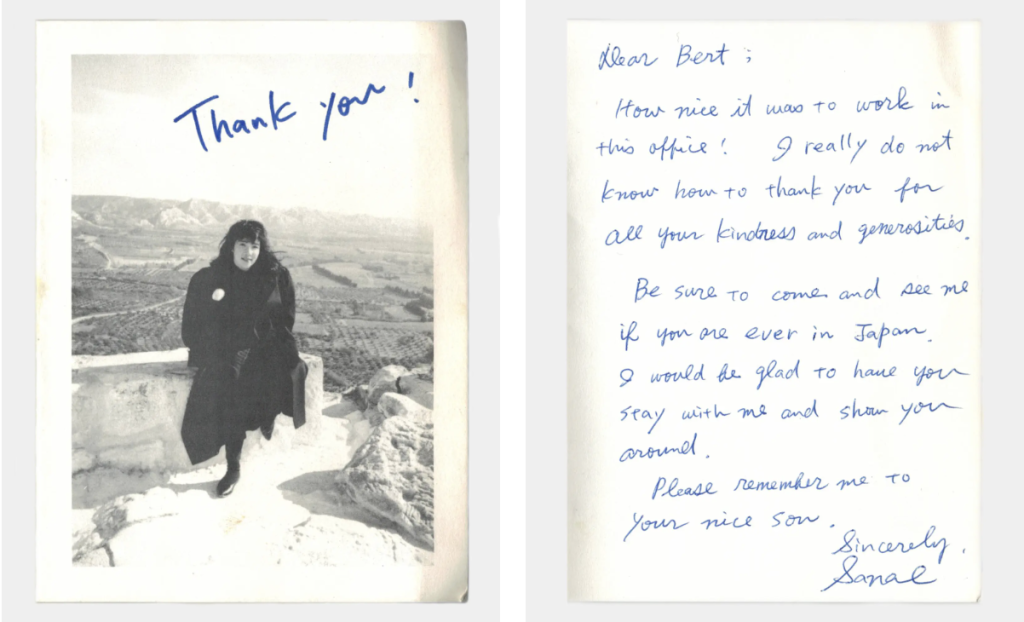 Thank you!
Dear Bert;
How nice it was to work in
this office! I really do not
know how to thank you for
all your kindness and generosities.
Be sure to come and see me
if you are ever in Japan.
I would be glad to have you
stay with me and show you
around.
Please remember me to
your nice son.
Sincerely,
Sanae